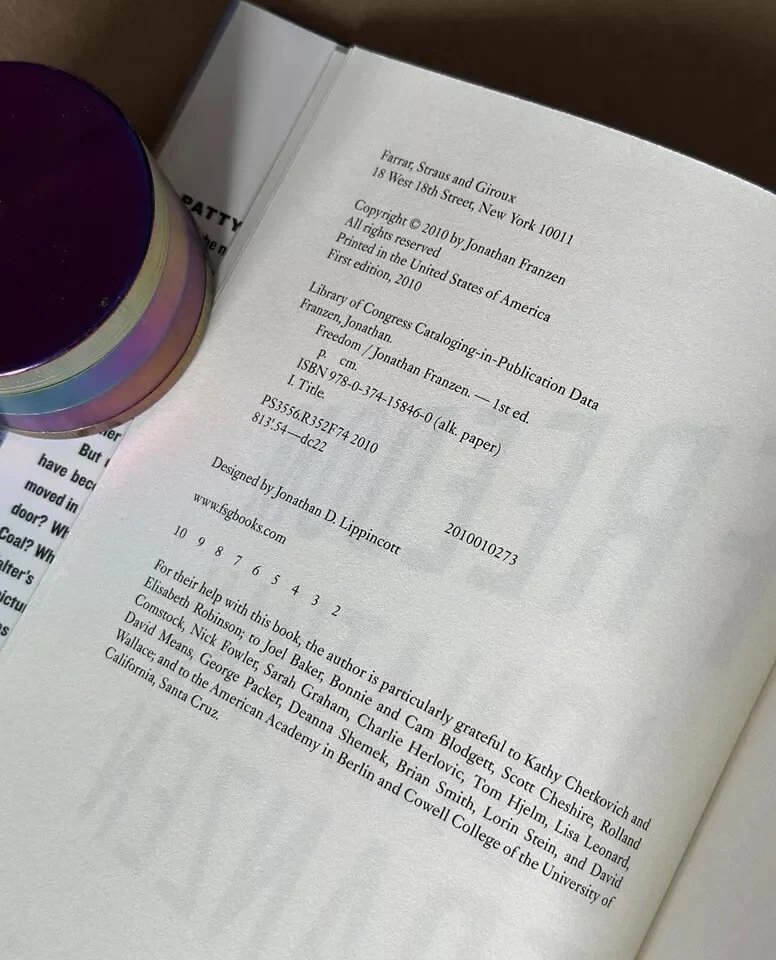 Farrar, Straus and Giroux
18 West 18th Street, New York 10011
Copyright © 2010 by Jonathan Franzen
All rights reserved
Printed in the United States of America
First edition, 2010
Library of Congress Cataloging-in-Publication Data
Franzen, Jonathan.
Freedom / Jonathan Franzen. — 1st ed.
p. cm.
ISBN 978-0-374-15846-0 (alk. paper)
I. Title.
PS3556.R352F74 2010
813'.54—dc22
2010010273
Designed by Jonathan D. Lippincott
www.fsgbooks.com
10 9 8 7 6 5 4 3 2
For their help with this book, the author is particularly grateful to Kathy Chetkovich and
Elisabeth Robinson; to Joel Baker, Bonnie and Cam Blodgett, Scott Cheshire, Rolland
Comstock, Nick Fowler, Sarah Graham, Charlie Herlovic, Tom Hjelm, Lisa Leonard,
David Means, George Packer, Deanna Shemek, Brian Smith, Lorin Stein, and David
Wallace; and to the American Academy in Berlin and Cowell College of the University of
California, Santa Cruz.
PATTY
But
have
moved in
door?
Coal?